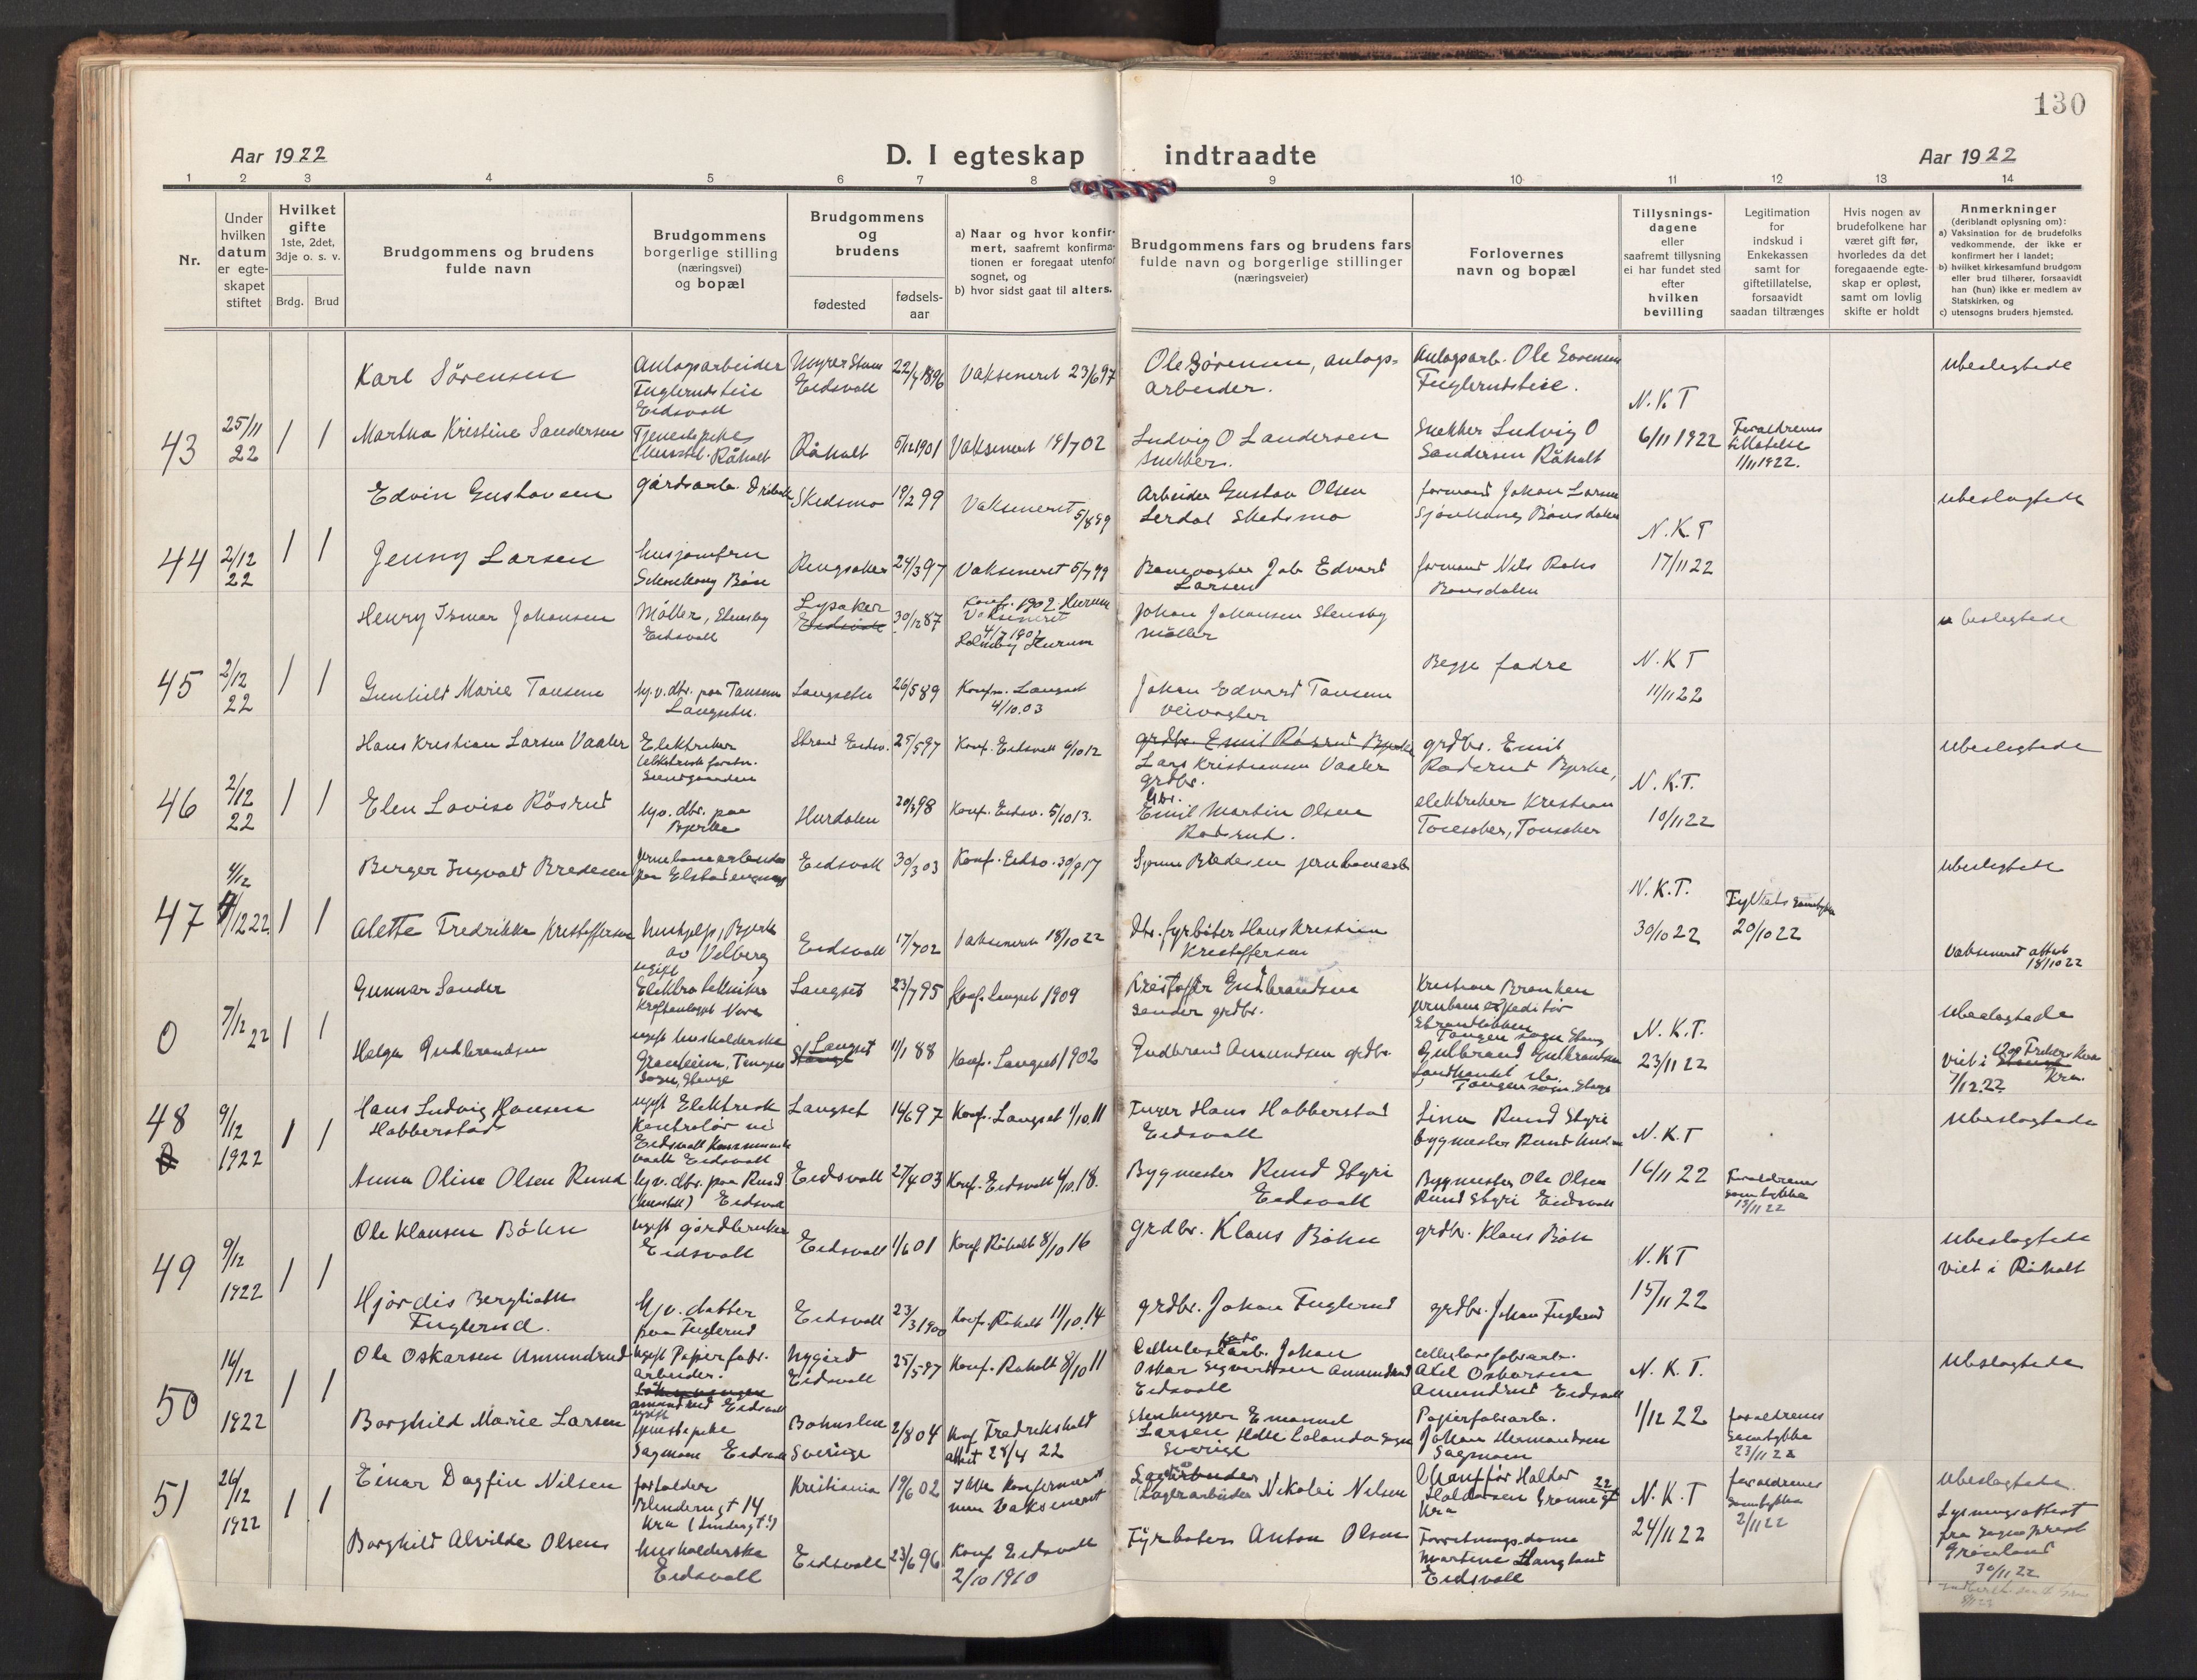 130
Aar 1922
D. I egteskap indtraadte
Aar 1922
1 2 3 4 5 6 7 8 9 10 11 12 13 14
Nr.
Under hvilken datum er egteskapet stiftet
Hvilket gifte
1ste, 2det, 3dje o. s. v.
Brdg. Brud
Brudgommens og brudens fulde navn
Brudgommens borgerlige stilling (næringsvei) og bopæl
Brudgommens og brudens
fødested
fødsels-aar
a) Naar og hvor konfirmert, saafremt konfirmationen er foregaat utenfor sognet, og
b) hvor sidst gaat til alters.
Brudgommens fars og brudens fars fulde navn og borgerlige stillinger (næringsveier)
Forlovernes navn og bopæl
Tillysningsdagene eller saafremt tillysning ei har fundet sted efter hvilken bevilling
Legitimation for indskud i Enkekassen samt for giftetillatelse, forsaavidt saadan tiltrænges
Hvis nogen av brudefolkene har været gift før, hvorledes da det foregaaende egteskap er opløst, samt om lovlig skifte er holdt
Anmerkninger
(deriblandt oplysning om):
a) Vaksination for de brudefolks vedkommende, der ikke er konfirmert her i landet;
b) hvilket kirkesamfund brudgom eller brud tilhører, forsaavidt han (hun) ikke er medlem av Statskirken, og
c) utensogns bruders hjemsted.
43 25/11 22 1 1
Karl Sørensen
Anlagsarbeider
Eidsvoll
Eidsvoll
22/7 1896
Vaksineret 23/6 97
Ole Sørensen, anlags=
arbeider.
Anlagsarb. Ole Sørensen
N. K. T
ubeslegtede
Martha Kristine Sandersen
Råholt
Råholt
5/12 1901
Vaksineret 19/7 02
Ludvig O Sandersen
snekker.
Snekker Ludvig O
Sandersen Råholt
6/11 1922
Foraldrenes
tillatelse
1/11 1922.
44 2/12 22 1 1
Edvin Gustavsen
gårdsarb.
Skedsmo
19/2 99
Vaksineret
5/8 99
Arbeider Gustav Olsen
Lerdal Skedsmo
formand Johan Larsen
N. K. T
ubeslegtede
Jenny Larsen
husjomfru
Ringsaker
24/3 97
Vaksineret 5/7 99
Banevogter Joh. Edvard
Larsen
formand Nils
Bønsdalen
17/11 22
45 2/12 22 1 1
Henry Ismar Johansen
Møller, Stensby
Eidsvoll
Lysaker
30/12 87
Konf. 1902 Hurum
Vaksineret
Hurum
Johan Johansen Stensby
møller
Begge fædre
N. K T
ubeslegtede
Gunhild Marie Tansem
hj.v. dtr. paa Tansem
Langseth.
Langseth
26/5 89
Konf. Langset
4/10.03
Johan Edvard Tansem
veivogter
11/11 22
46 2/12 22 1 1
Hans Kristian Larsen Vaaler
Elektriker
Strand Eidsv.
25/5 97
Konf. Eidsvoll 6/10 12
Lars Kristiansen Vaaler
grdbr.
grdbr. Emil
Røsrud Bjerke,
N. K. T.
ubeslegtede
Elen Lovise Røsrud
hjv. dtr. paa
Bjerke
Hurdalen
20/3 98
Konf. Eidsv. 5/10 13.
Gbr.
Emil Martin Olsen
elektriker Kristian
10/11 22
47 4/12 22 1 1
Berger Ingvald Bredesen
jernbanearbeider
Eidsvoll
30/3 03
Konf. Eidsv. 30/9 17
Bredesen jernbanearb
N. K. T.
ubeslegtede
Alette Fredrikke Kristoffersen
hushjelp, Bjerke
av Velberg
Eidsvoll
17/7 02
Vaksineret 18/10 22
fyrbøter Hans Kristian
Kristoffersen
30/10 22
20/10 22
Vaksineret attest
18/10 22
0 7/12 22 1 1
Gunnar Sander
ugift
Elektrotekniker
Langset
23/7 95
Konf. Langset 1909
Kristoffer Gudbrandsen
Sander grdbr.
Kristian Brenken
jernbaneexpeditør
Tangen sogn Stange
N. K. T.
ubeslegtede
Helga Gudbrandsen
ugift husholderske
Grønheim, Tangen
Sogn, Stange
Langset
11/1 88
Konf. Langset 1902
Gudbrand Amundsen grdbr.
Gulbrand Gulbrandsen
Landhandel
Tangen sogn Stange
23/11 22
viet i
7/12.22
48 9/12 1922 1 1
Hans Ludvig Hansen
Habberstad
ugift Elektrisk
Kontrolør ved
Eidsvoll Kommunale
Langset
14/6 97
Konf. Langset 1/10.11
Furer Hans Habberstad
Eidsvoll
N. K. T
ubeslegtede
Anna Oline Olsen Rund
hj v. dtr. paa Rund
Eidsvoll
Eidsvoll
27/4 03
Konf. Eidsvoll 6/10.18.
Bygmester Rund Styri
Eidsvoll
Bygmester Ole Olsen
Rund Styri Eidsvoll
16/11 22
Foraldrenes
samtykke
15/11 22
49 9/12 1922 1 1
Ole Klausen Böhn
ugift gårdbruker
Eidsvoll
Eidsvoll
1/6 01
Konf. Råholt 8/10 16
grdbr. Klaus Böhn
grdbr. Klaus Böhn
N. K T
ubeslegtede
viet i Råholt
Hjørdis Berglioth
Fuglerud.
hj v. datter
paa Fuglerud
Eidsvoll
23/3 1900
Konf. Råholt 11/10.14
grdbr. Johan Fuglerud
grdbr. Johan Fuglerud
15/11 22
50 16/12 1922 1 1
Ole Oskarsen Amundrud
ugift Papirfabr.
arbeider.
Amundrud Eidsvoll
Nygård
Eidsvoll
25/5 97
Konf. Råholt 8/10 11
Cellulosefabr.arb. Johan
Oskar Sigvartsen Amundrud
Eidsvoll
cellulosefabrarb.
Axel Oskarsen
Amundrud Eidsvoll
N. K. T.
ubeslegtede
Borghild Marie Larsen
ugift
tjenestepike
Sagmoen Eidsvoll
Bohuslen
Sverige
2/8 04
Konf Fredrikshald
attest 28/4 22
Stenhugger Emanuel
Larsen
Sverige
Papirfabrarb.
Johan Hermansen
Sagmoen
1/12 22
foraldrenes
samtykke
23/11 22
51 26/12 1922 1 1
Einar Dagfin Nilsen
Kristiania
19/6 02
Ikke konfirmeret
men Vaksineret
Lagerarbeider Nikolai Nilsen
Chauffør Haldor
Haldorsen Grønnegt 22
Kra
N. K. T
foraldrenes
samtykke
2/11 22
ubeslegtede.
Lysningsattest
fra Sogneprest
Grønland
30/11 22
Borghild Alvilde Olsen
husholderske
Eidsvoll
Eidsvoll
23/6 96
Konf Eidsvoll
2/10 1910
Fyrbøter Anton Olsen
Forretningsdame
Martine Haugland
Eidsvoll
24/11 22